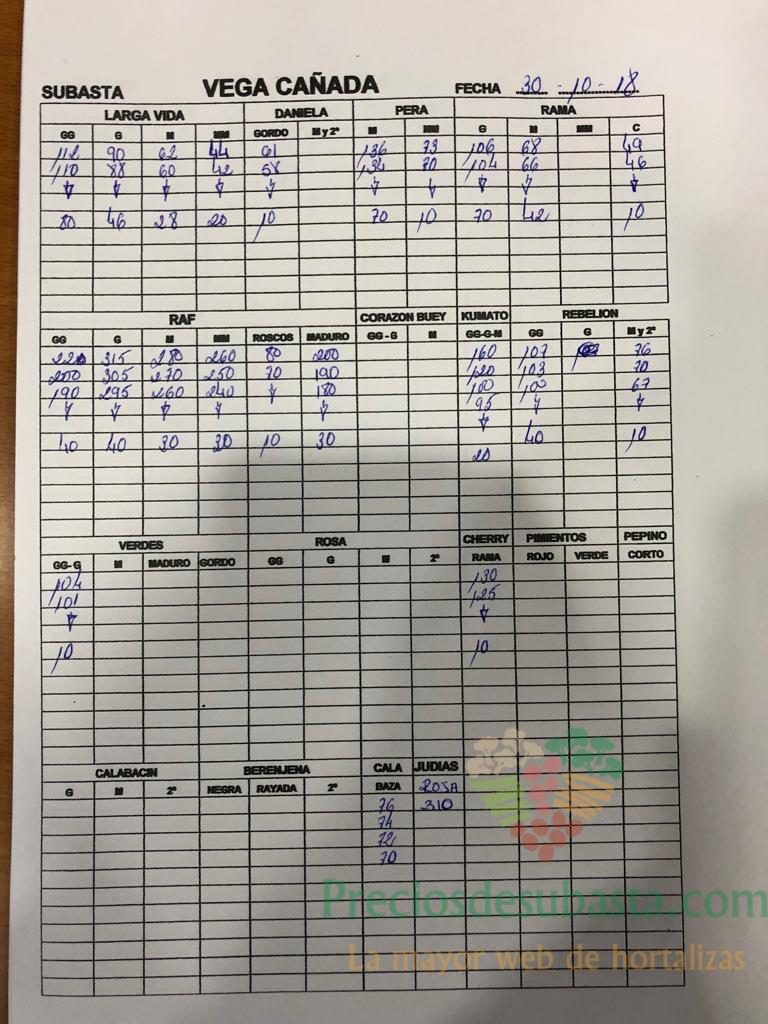 SUBASTA VEGA CAÑADA FECHA 30-10-18
LARGA VIDA DANIELA PERA RAMA
GG G M MM GORDO M y 2ª M MM G M MM C
112 90 62 44 61 136 73 106 68 49
110 88 60 42 58 134 70 104 66 46
80 46 28 20 10 70 10 70 42 10
RAF CORAZON BUEY KUMATO REBELION
GG G M MM ROSCOS MADURO GG-G M GG-G-M GG G M y 2ª
220 315 280 260 80 200 160 107 76
200 305 270 250 70 190 120 103 70
190 295 260 240 180 100 100 67
95
40 40 30 30 10 30 40 10
20
VERDES ROSA CHERRY PIMIENTOS PEPINO
GG-G M MADURO GORDO GG G M 2ª RAMA ROJO VERDE CORTO
104 130
101 125
10 10
CALABACIN BERENJENA CALA JUDIAS
G M 2ª NEGRA RAYADA 2ª BAZA ROJA
76 310
74
72
70
Preciosdesubasta.com
La mayor web de hortalizas